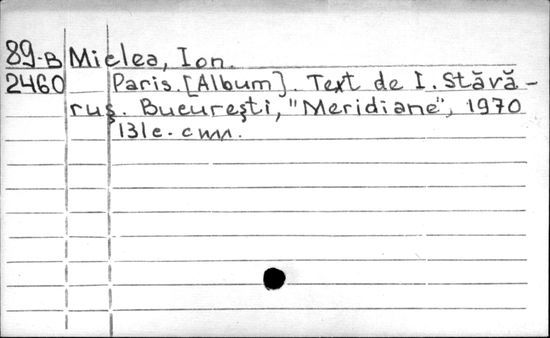 89-B Mielea, Ion.
2460 Paris. [Album]. Text de I. Stăvă-
ruş. Bucureşti, "Meridiane", 1970
131 c. c илл.